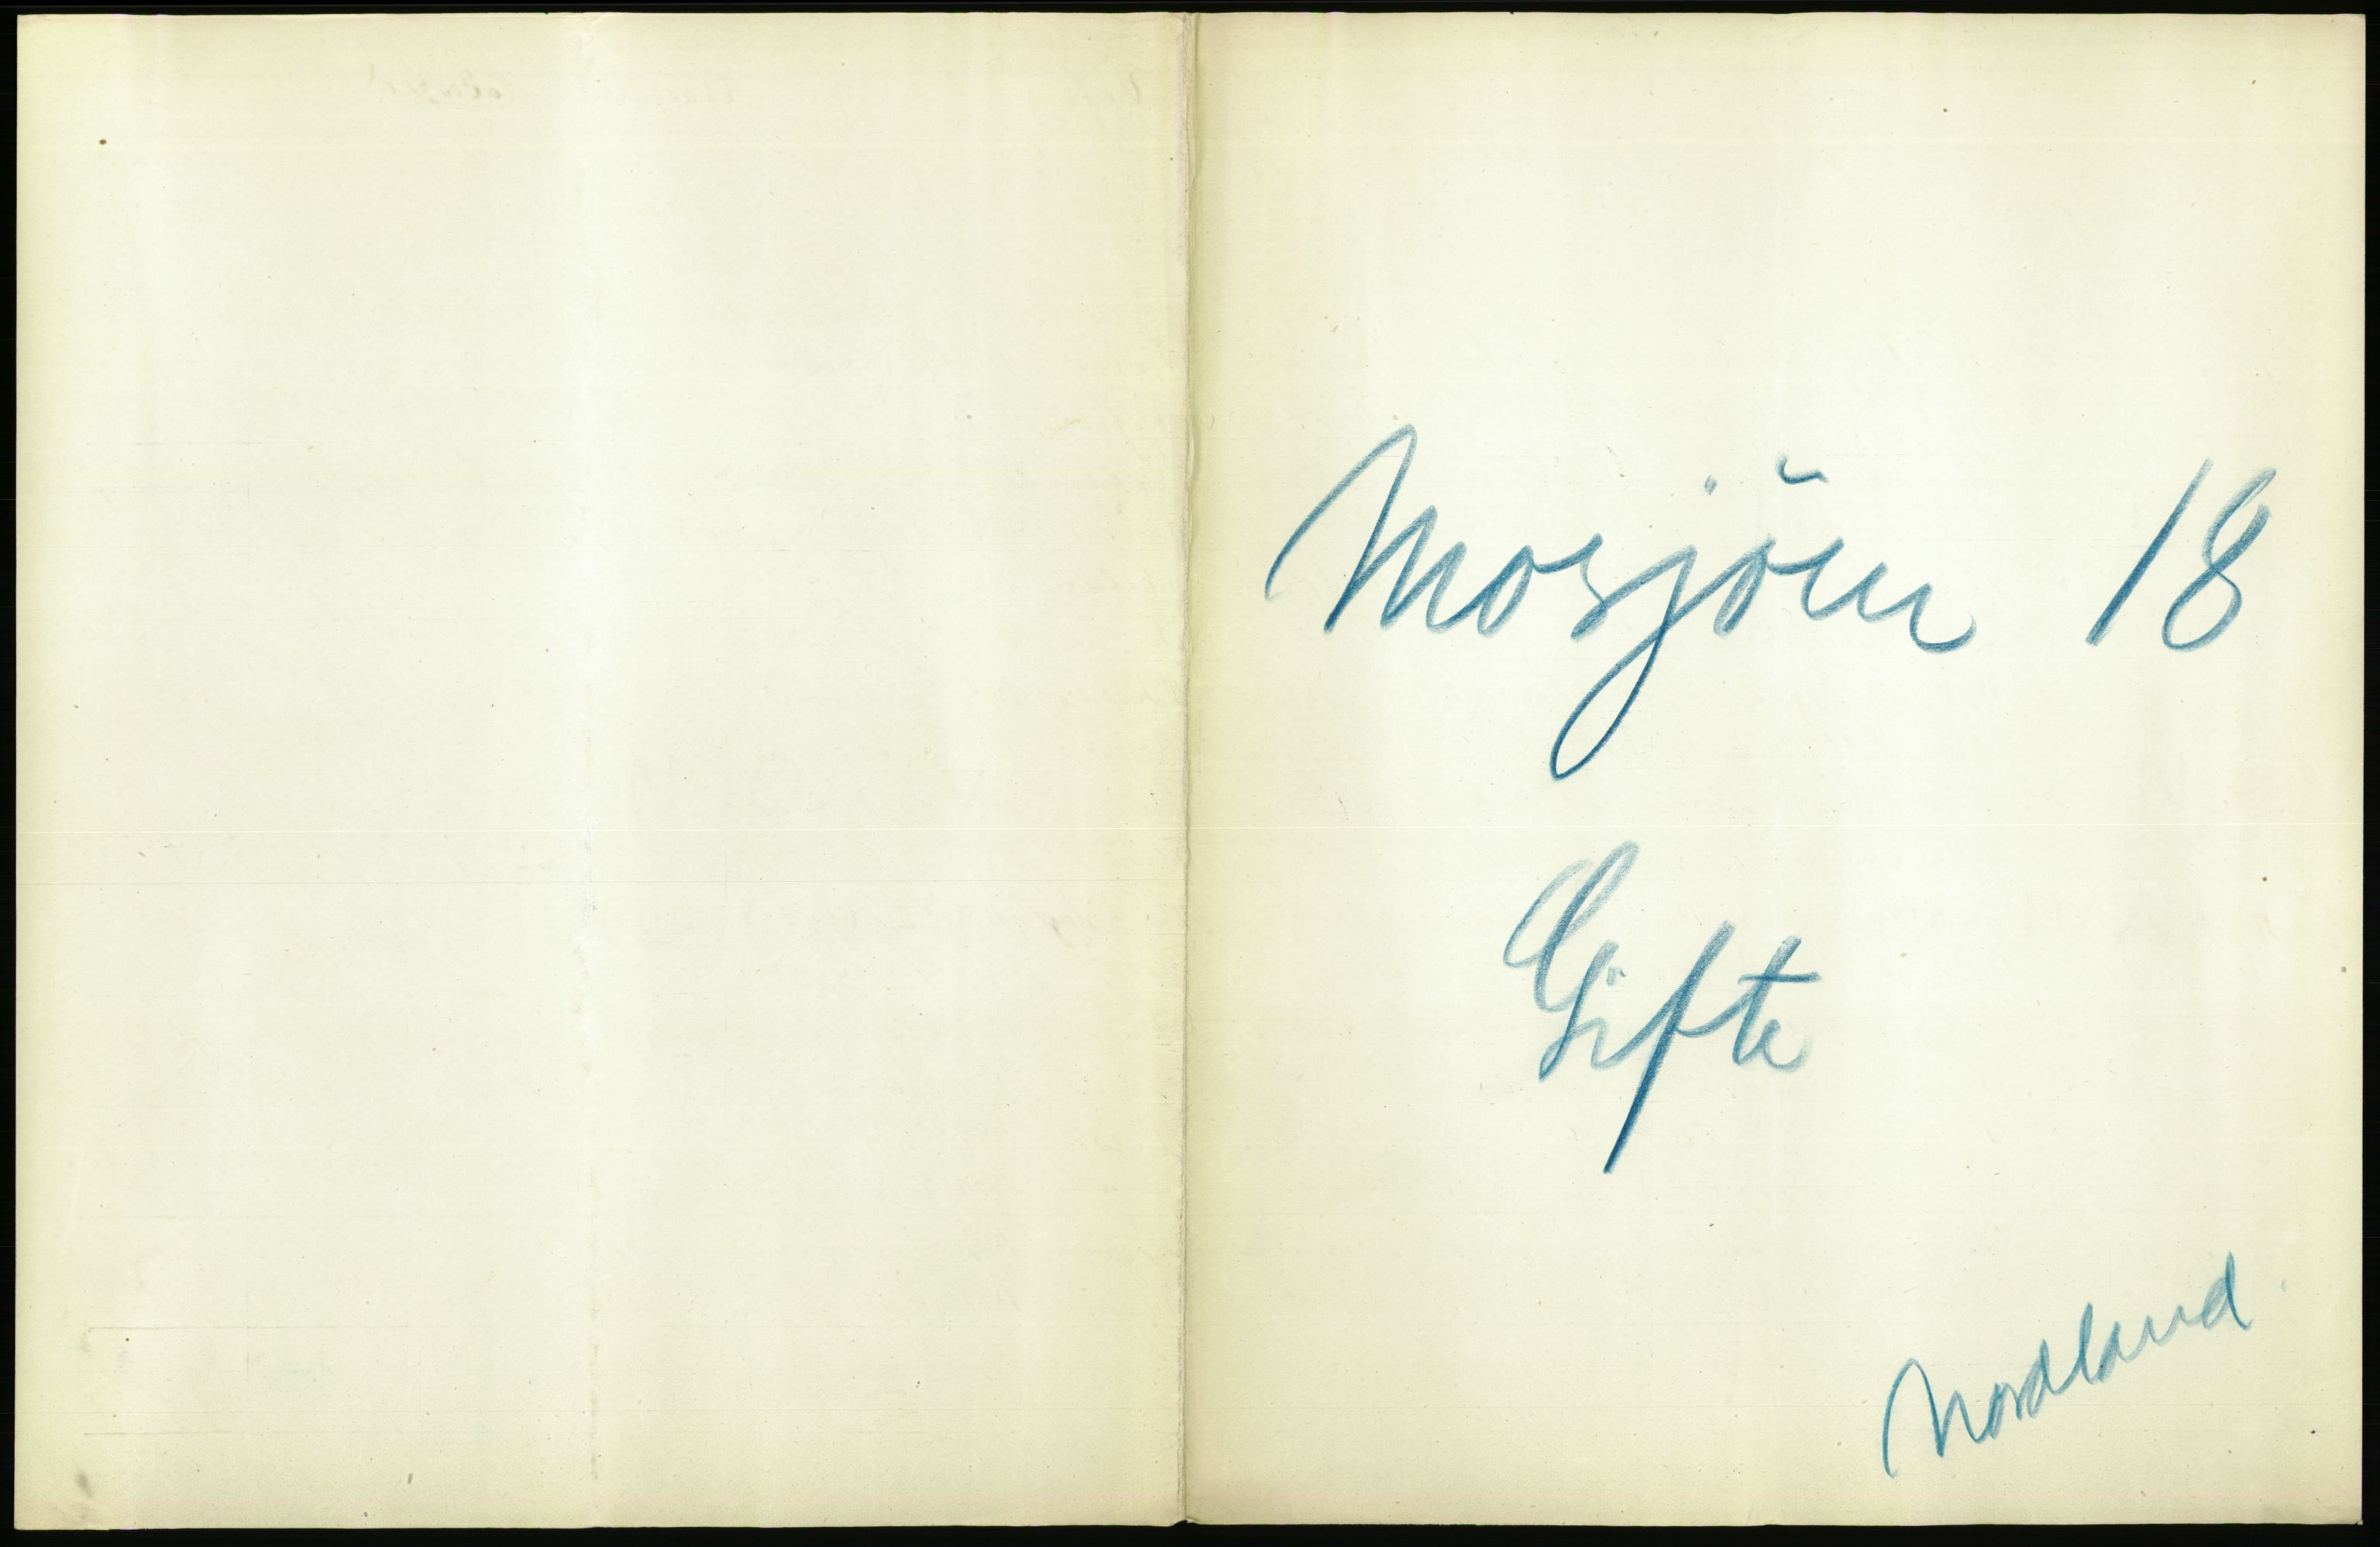 Mosjöen 18
Gifte
Nordland.